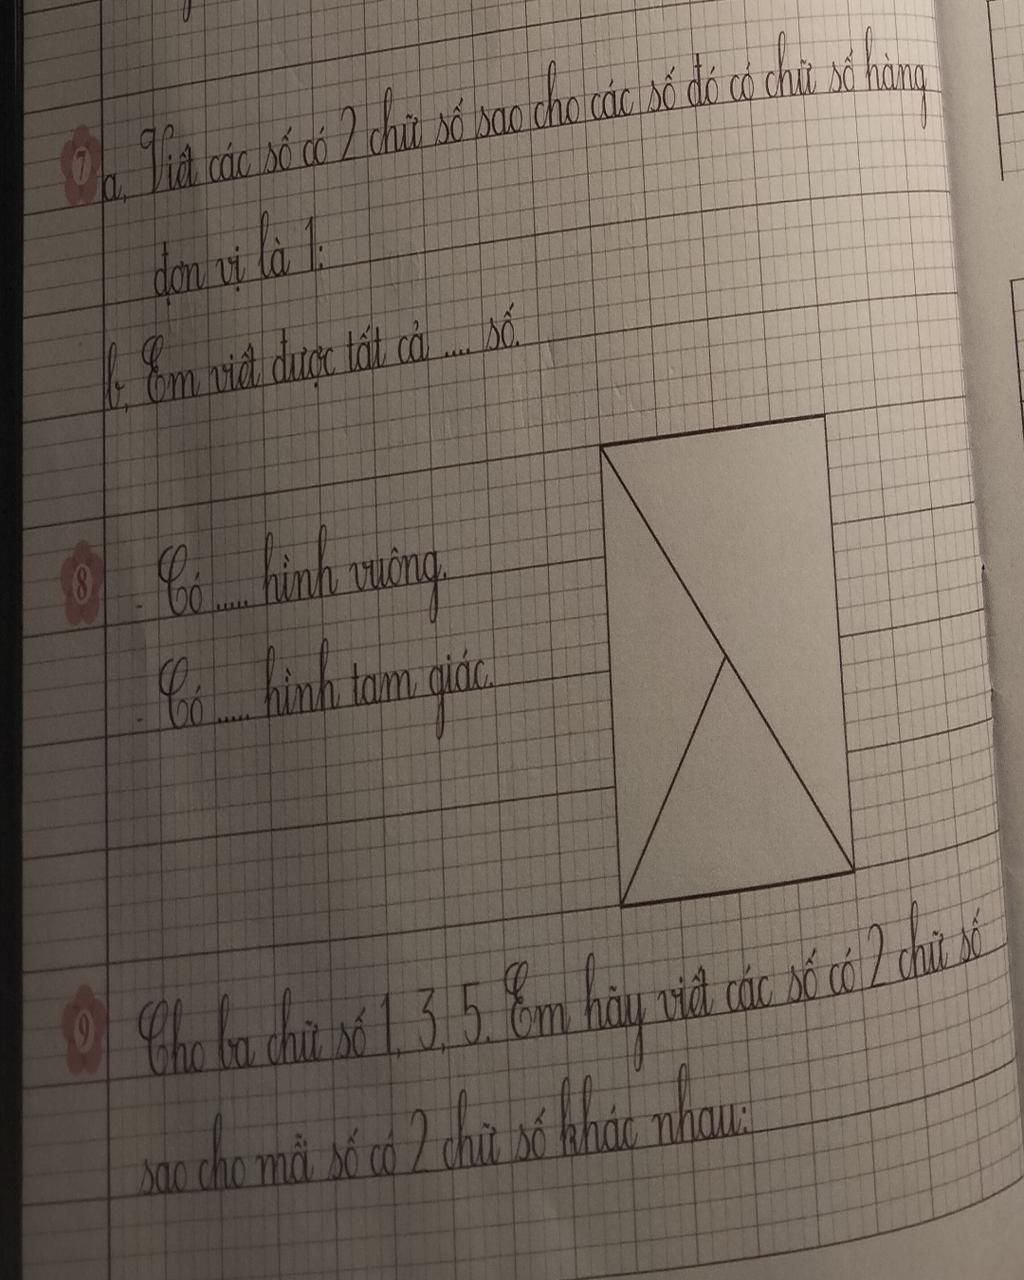 7 a, Viết các số có 2 chữ số sao cho các số đó có chữ số hàng
đơn vị là 1:
b, Em viết được tất cả .... số.
8 - Có ..... hình vuông.
- Có ..... hình tam giác.
9 Cho ba chữ số 1, 3, 5. Em hãy viết các số có 2 chữ số
sao cho mỗi số có 2 chữ số khác nhau: